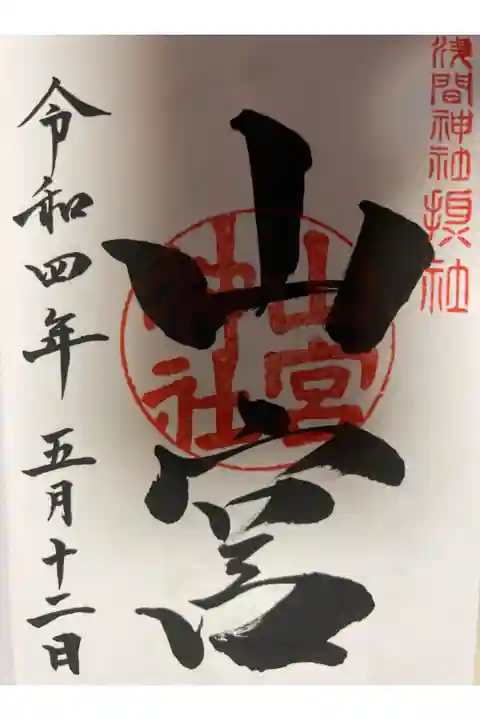 浅間神社摂社
山宮
山宮神社
令和四年五月十二日